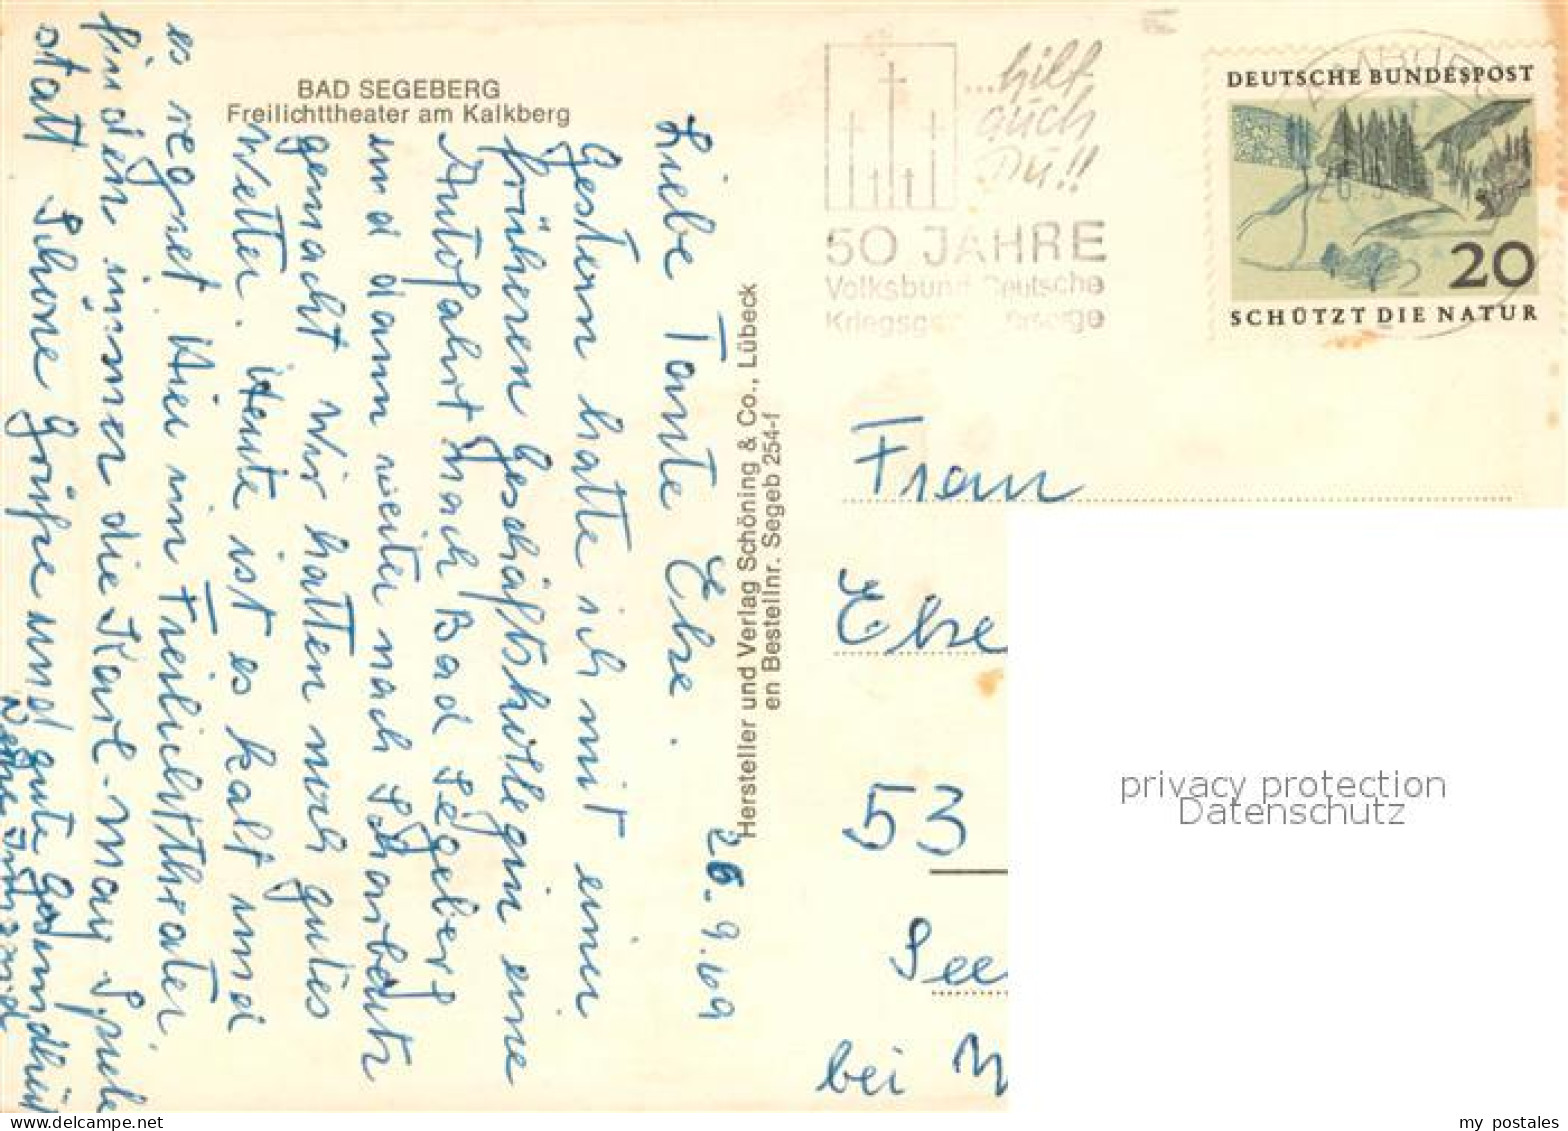 BAD SEGEBERG
Freilichttheater am Kalkberg
26.9.69
Liebe Tante Else.
Gestern hatte ich mit einer
früheren Geschäftskollegin eine
Autofahrt nach Bad Segeberg
und dann weiter nach Scharbeutz
gemacht Wir hatten noch gutes
Wetter. Heute ist es kalt und
es regnet Hier im Freilichttheater
finden immer die Karl-May Spiele
statt Schöne Grüße und gute Gesundheit
Deine Irmgard
Hersteller und Verlag Schöning & Co., Lübeck
en Bestellnr. Segeb 254-f
...hilf
auch
Du!!
50 JAHRE
Volksbund Deutsche
DEUTSCHE BUNDESPOST
20
SCHÜTZT DIE NATUR
Frau
Else
53
See
bei
privacy protection
Datenschutz
my postales